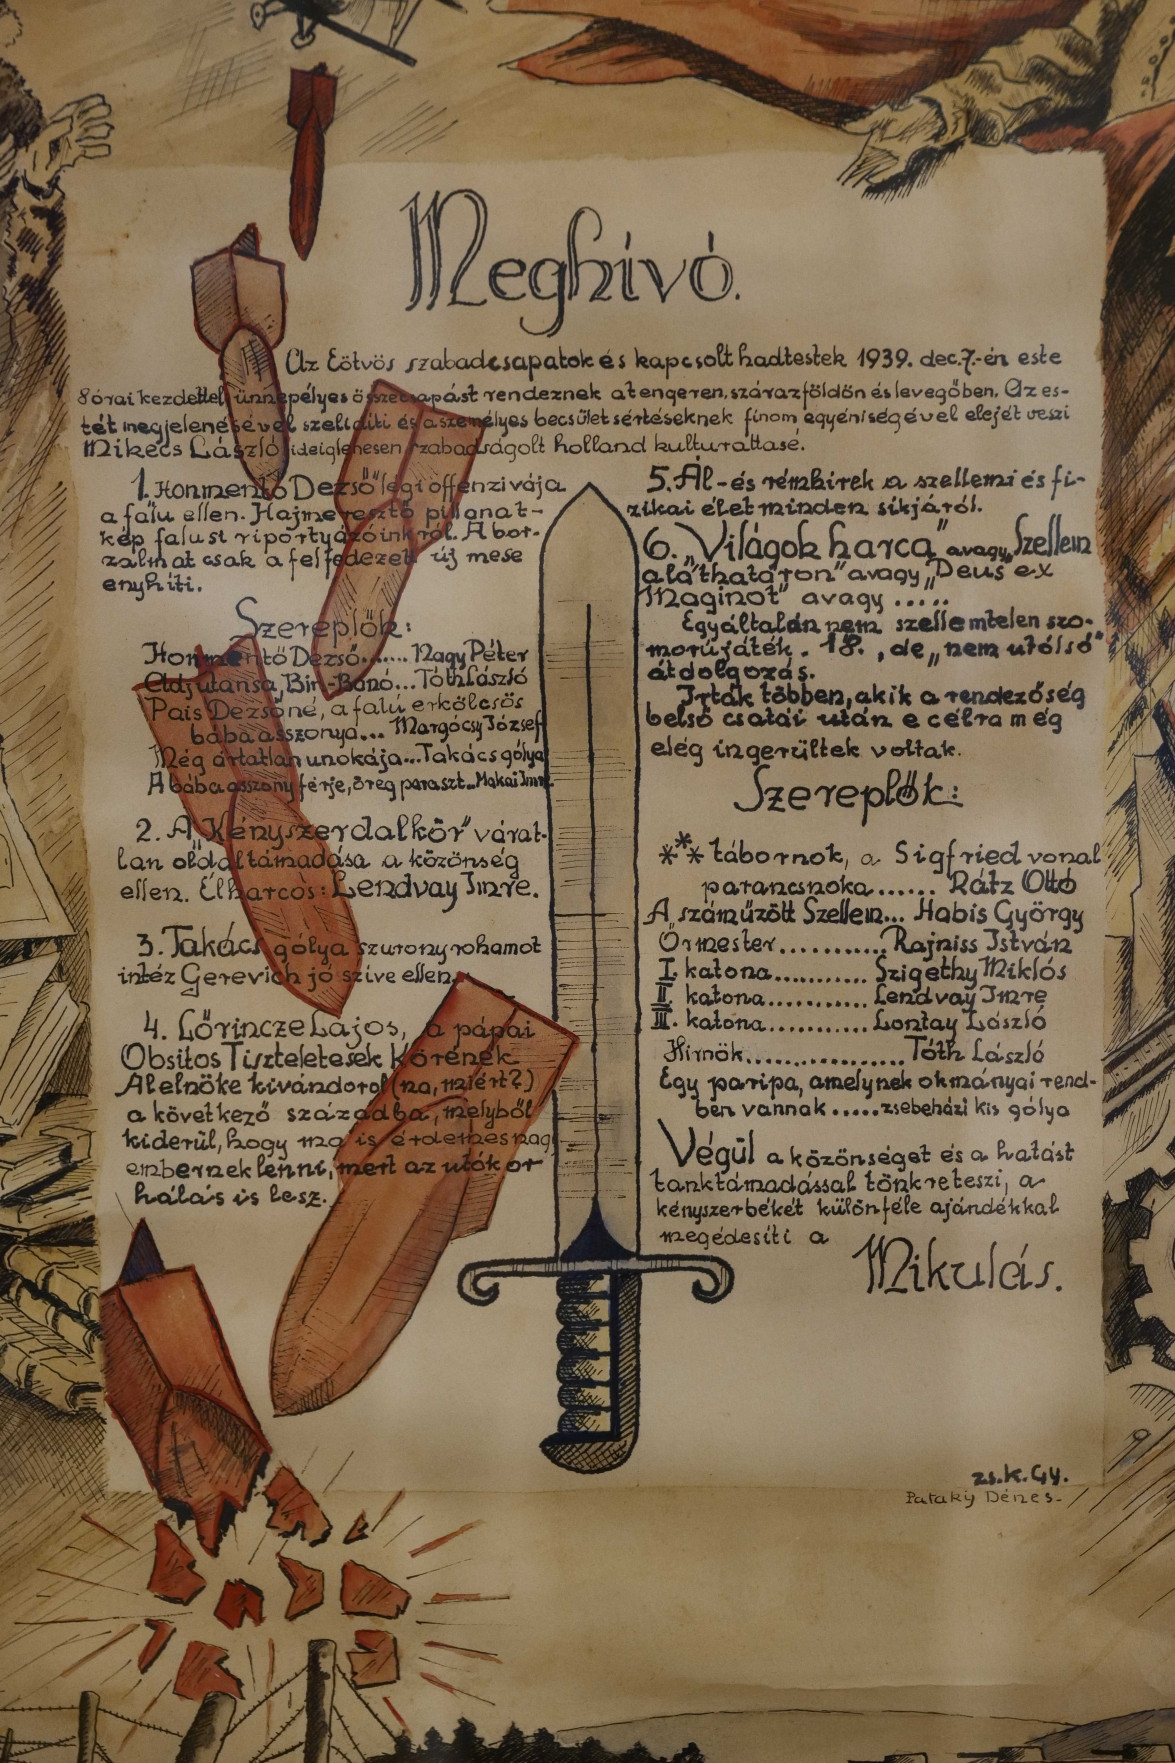 Meghívó.
Az Eötvös szabadcsapatok és kapcsolt hadtestek 1939. dec. 7.-én este
8 órai kezdettel ünnepélyes összecsapást rendeznek a tengeren, szárazföldön és levegőben. Az es-
tét megjelenésével szelidíti és a személyes becsületsértéseknek finom egyéniségével elejét veszi
Mikecs László ideiglenesen szabadságolt holland kulturattasé.
1. Honmentő Dezső légi offenzivája
a falu ellen. Hajmeresztő pillanat-
kép falusi riportyázóinkról. A bor-
zalmat csak a felfedezett új mese
enyhíti.
Szereplők:
Honmentő Dezső....... Nagy Péter
Adjutánsa, Biri-Bonó... Tóth László
Pais Dezsőné, a falu erkölcsös
bábaasszonya... Margócsy József
Még ártatlan unokája... Takács gólya
A bábaasszony férje, öreg paraszt.. Makai Imre
2. A „Kényszerdalkör" várat-
lan oldaltámadása a közönség
ellen. Élharcos: Lendvay Imre.
3. Takács gólya szuronyrohamot
intéz Gerevich jó szíve ellen.
4. Lőrincze Lajos, a pápai
Obsitos Tiszteletesek Körének
Alelnöke kivándorol (na, miért?)
a következő századba, melyből
kiderül, hogy ma is érdemes nagy
embernek lenni, mert az utókor
hálás is lesz.
5. Ál- és rémhirek a szellemi és fi-
zikai élet minden síkjáról.
6. „Világok harca" avagy „Szellem
a láthatáron" avagy „Deus ex
Maginot" avagy .....
Egyáltalán nem szellemtelen szo-
morújáték. 18., de „nem utólsó"
átdolgozás.
Irták többen, akik a rendezőség
belső csatái után e célra még
elég ingerültek voltak.
Szereplők:
*** tábornok, a Sigfried vonal
parancsnoka...... Rátz Ottó
A száműzött Szellem... Habis György
Őrmester........... Rajniss István
I. katona.......... Szigethy Miklós
II. katona........... Lendvay Imre
III. katona........... Lontay László
Hirnök................ Tóth László
Egy paripa, amelynek okmányai rend-
ben vannak..... zsebeházi kis gólya
Végül a közönséget és a hatást
tanktámadással tönkreteszi, a
kényszerbékét különféle ajándékkal
megédesíti a
Mikulás.
zs.k.Gy.
Pataky Dénes.